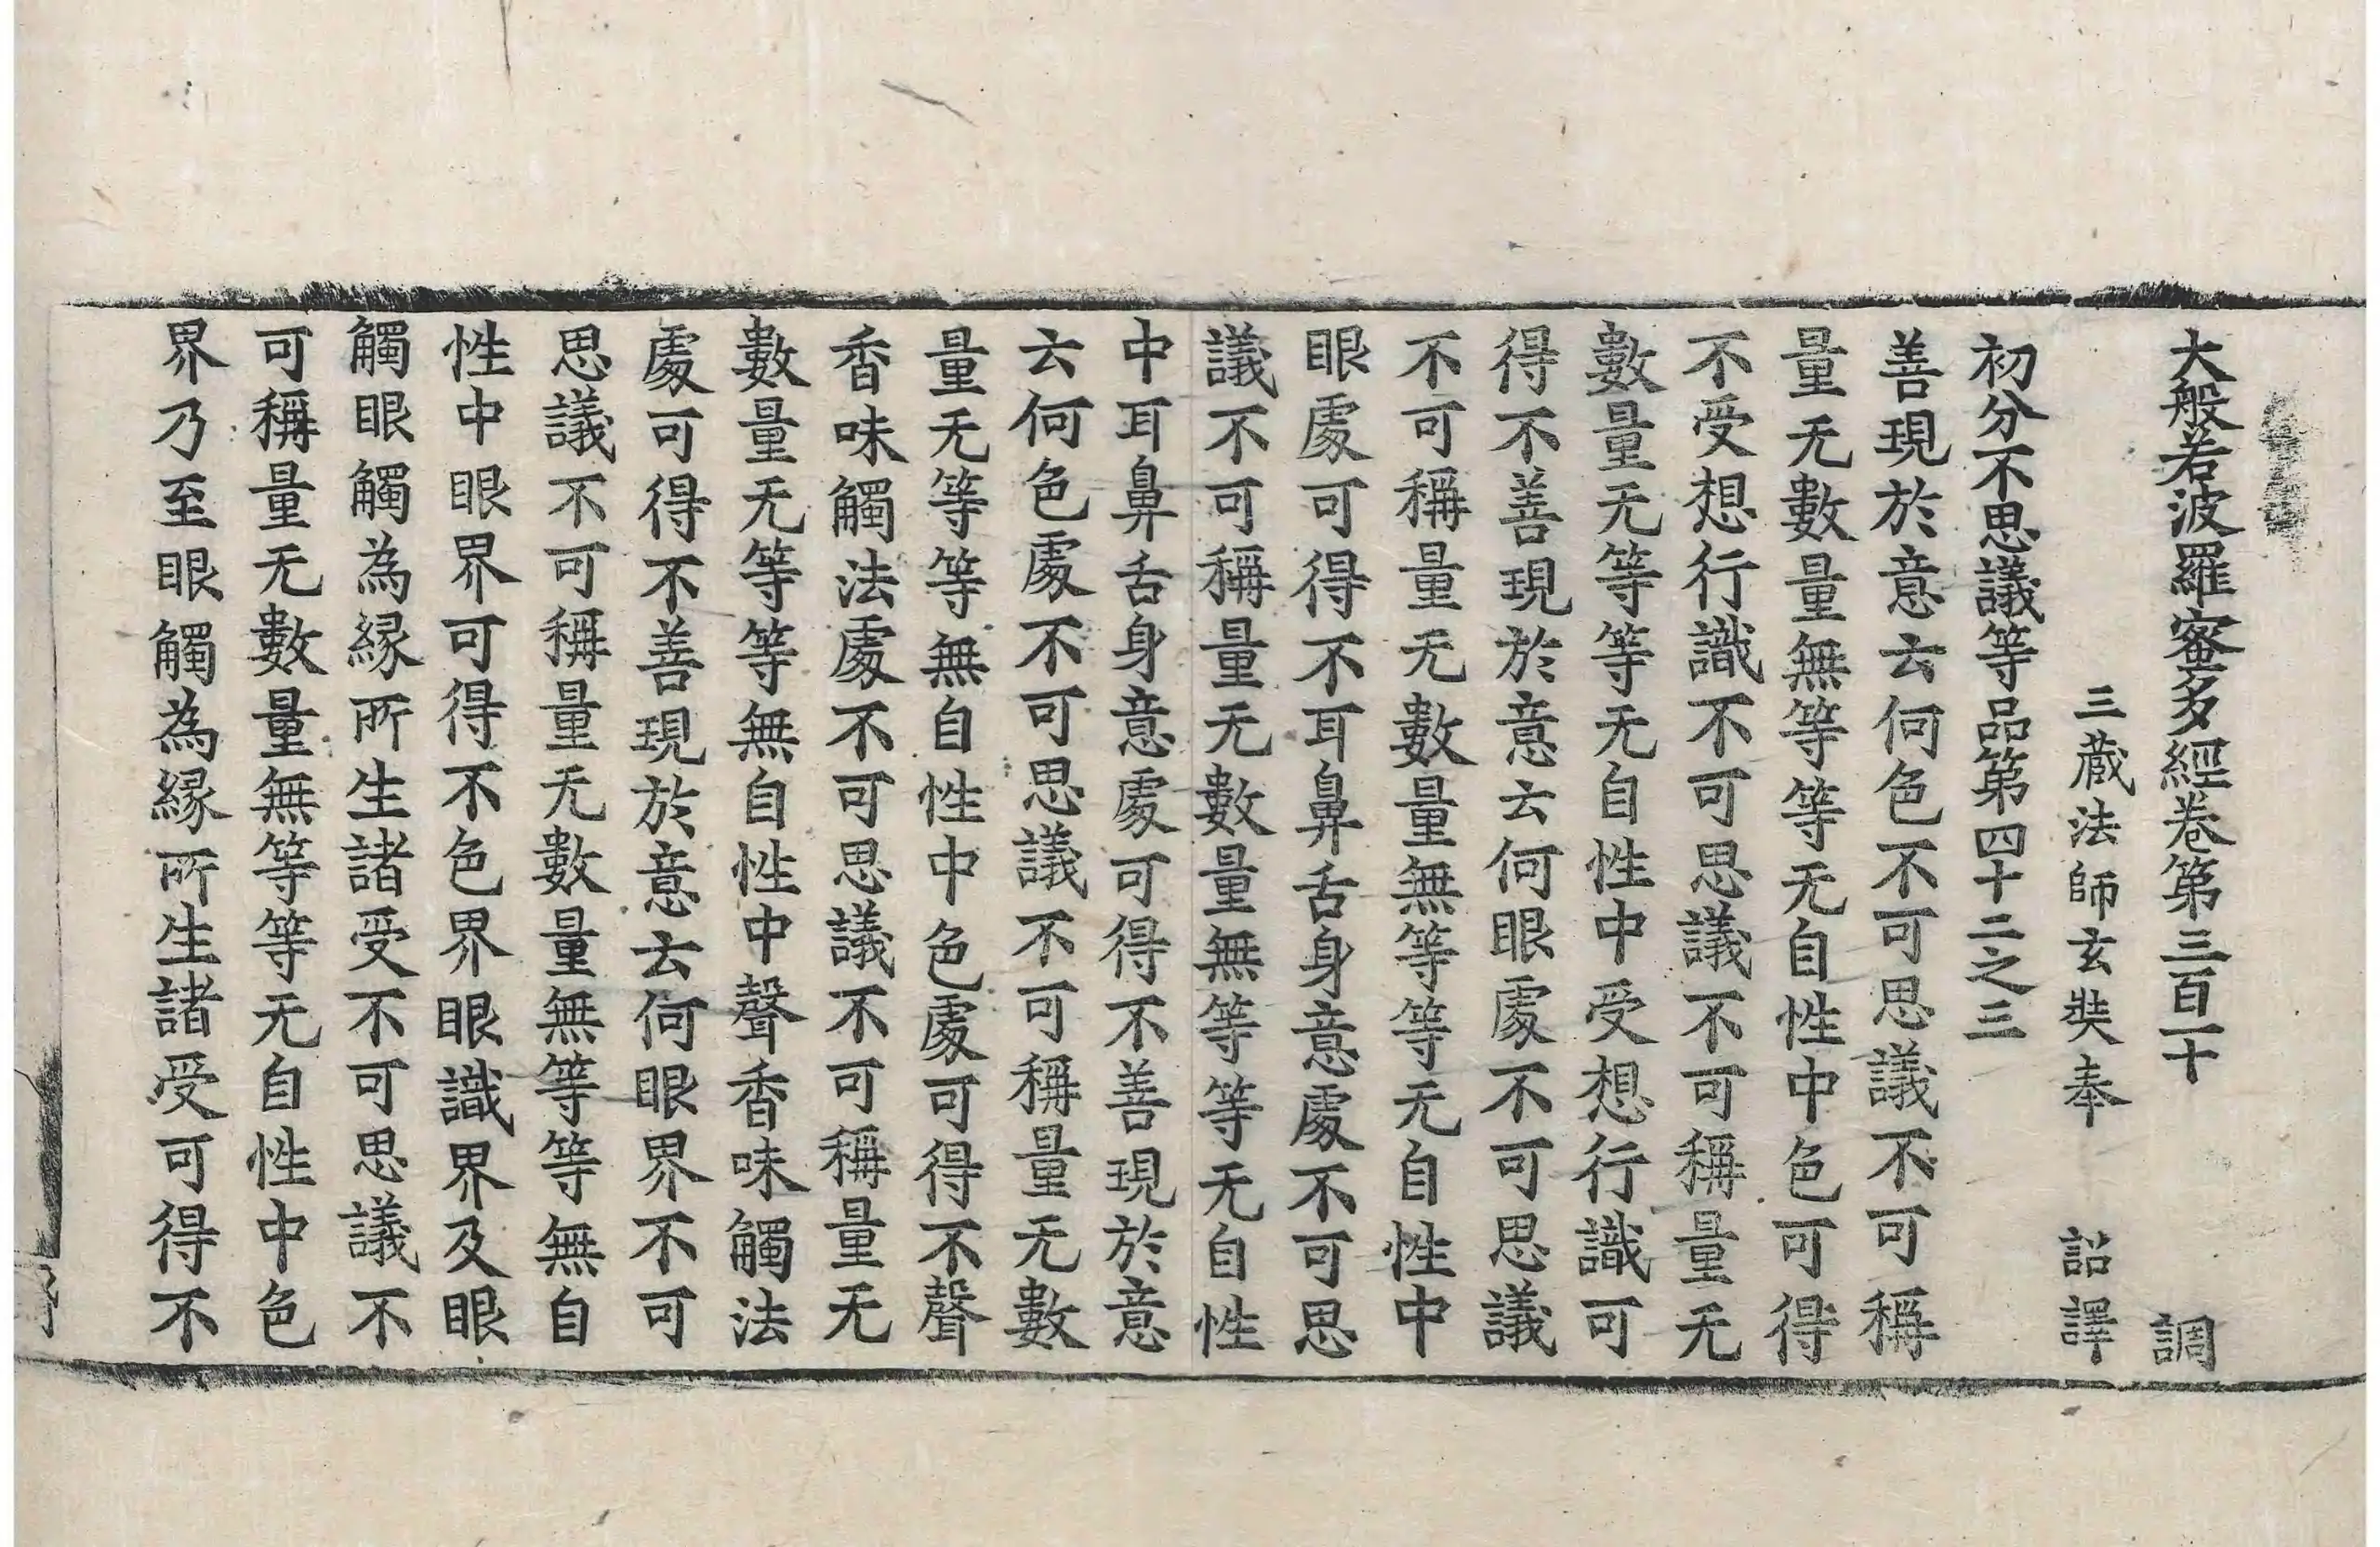 大般若波羅蜜多經卷第三百一十 調
三藏法師玄奘奉 詔譯
初分不思議等品第四十二之三
善現於意云何色不可思議不可稱
量无數量無等等无自性中色可得
不受想行識不可思議不可稱量无
數量无等等无自性中受想行識可
得不善現於意云何眼處不可思議
不可稱量无數量無等等无自性中
眼處可得不耳鼻舌身意處不可思
議不可稱量无數量無等等无自性
中耳鼻舌身意處可得不善現於意
云何色處不可思議不可稱量无數
量无等等無自性中色處可得不聲
香味觸法處不可思議不可稱量无
數量无等等無自性中聲香味觸法
處可得不善現於意云何眼界不可
思議不可稱量无數量無等等無自
性中眼界可得不色界眼識界及眼
觸眼觸為緣所生諸受不可思議不
可稱量无數量無等等无自性中色
界乃至眼觸為緣所生諸受可得不